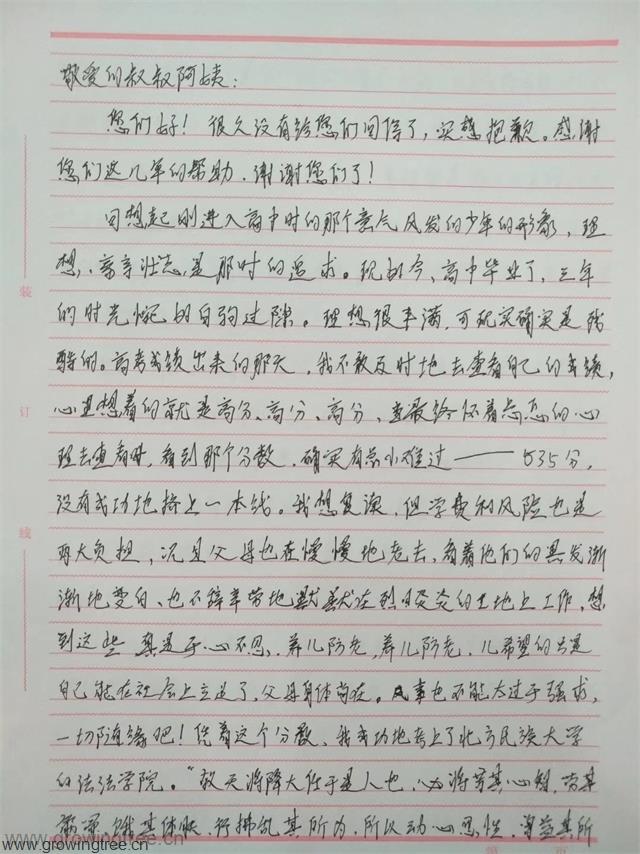 敬爱的叔叔阿姨：
您们好！很久没有给您们回信了，实感抱歉。感谢
您们这几年的帮助，谢谢您们了！
回想起刚进入高中时的那个意气风发的少年的形象，理
想、豪言壮志是那时的追求。现如今，高中毕业了，三年
的时光恍如白驹过隙。理想很丰满，可现实确实是残
酷的。高考成绩出来的那天，我不敢及时地去查看自己的成绩，
心里想着的就是高分、高分、高分，直最终怀着忐忑的心
理去查看时，看到那个分数，确实有点小难过——535分，
没有成功地搭上一本线。我想复读，但学费和风险也是
两大负担，况且父母也在慢慢地老去，看着他们的黑发渐
渐地变白、也不辞辛劳地默默在烈日炎炎的工地上工作，想
到这些 真是于心不忍，养儿防老，养儿防老，儿希望的当是
自己能在社会上立足了，父母身体尚在。凡事也不能太过于强求，
一切随缘吧！凭着这个分数，我成功地考上了北方民族大学
的法法学院。“故天将降大任于是人也，必将苦其心智，劳其
饿其体肤，行拂乱其所为，所以动心忍性，增益其所
装
订
线
www.growingtree.cn
www.growingtree.cn